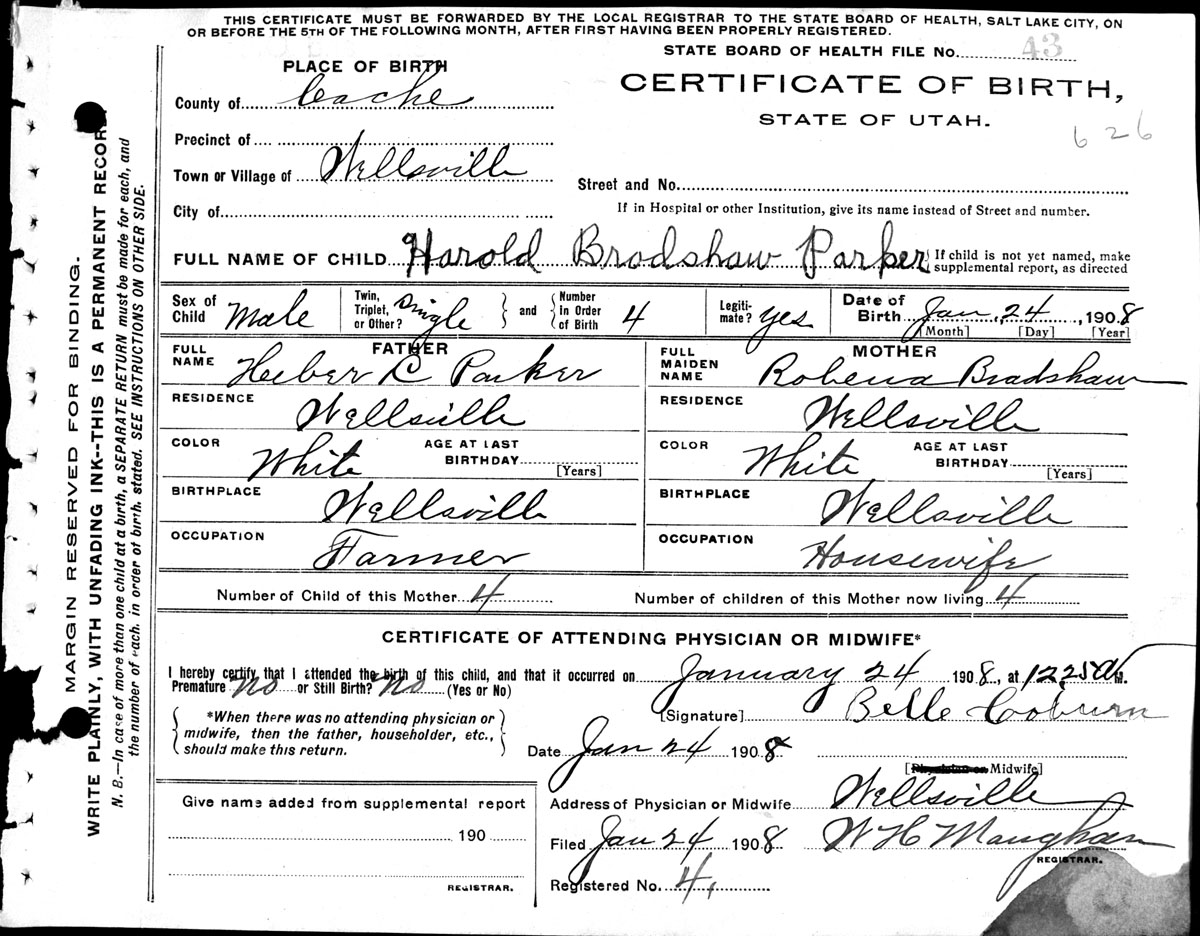 THIS CERTIFICATE MUST BE FORWARDED BY THE LOCAL REGISTRAR TO THE STATE BOARD OF HEALTH, SALT LAKE CITY, ON
OR BEFORE THE 5TH OF THE FOLLOWING MONTH, AFTER FIRST HAVING BEEN PROPERLY REGISTERED.
STATE BOARD OF HEALTH FILE No. 43
PLACE OF BIRTH
CERTIFICATE OF BIRTH,
County of Cache
STATE OF UTAH.
626
Precinct of
Town or Village of Wellsville
Street and No.
City of
If in Hospital or other Institution, give its name instead of Street and number.
FULL NAME OF CHILD Harold Bradshaw Parker { If child is not yet named, make supplemental report, as directed
Sex of Child Male Twin, Triplet, or Other? Single and Number In Order of Birth 4 Legitimate? Yes Date of Birth Jan, 24, 1908
[Month] [Day] [Year]
FATHER
MOTHER
FULL NAME Heber C Parker
FULL MAIDEN NAME Robena Bradshaw
RESIDENCE Wellsville
RESIDENCE Wellsville
COLOR White AGE AT LAST BIRTHDAY [Years]
COLOR White AGE AT LAST BIRTHDAY [Years]
BIRTHPLACE Wellsville
BIRTHPLACE Wellsville
OCCUPATION Farmer
OCCUPATION Housewife
Number of Child of this Mother 4 Number of children of this Mother now living 4
CERTIFICATE OF ATTENDING PHYSICIAN OR MIDWIFE*
I hereby certify that I attended the birth of this child, and that it occurred on January 24 1908, at 12.25 A M.
Premature No or Still Birth? No (Yes or No)
*When there was no attending physician or
midwife, then the father, householder, etc.,
should make this return.
[Signature] Belle Coburn
Date Jan 24 1908
[Physician or Midwife]
Give name added from supplemental report
190
REGISTRAR.
Address of Physician or Midwife Wellsville
Filed Jan 24 1908 W H Maughan
REGISTRAR.
Registered No. 4,
MARGIN RESERVED FOR BINDING.
WRITE PLAINLY, WITH UNFADING INK--THIS IS A PERMANENT RECORD
N. B.—In case of more than one child at a birth, a SEPARATE RETURN must be made for each, and
the number of each, in order of birth, stated. SEE INSTRUCTIONS ON OTHER SIDE.